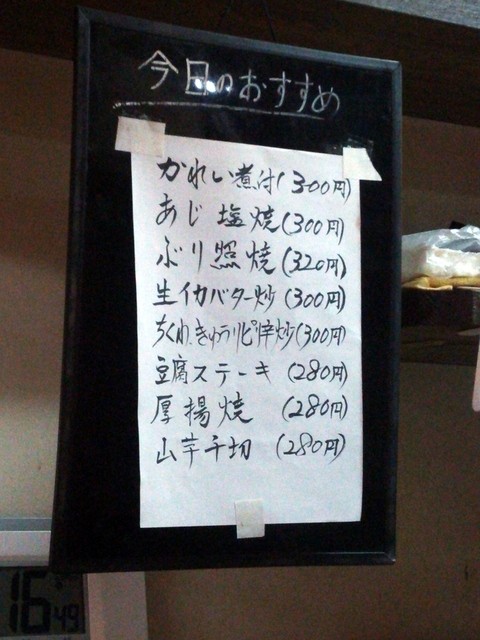 今日のおすすめ
かれい煮付(300円)
あじ 塩焼(300円)
ぶり照焼(320円)
生イカバター炒(300円)
ちくわ.きゅうりピ辛炒(300円)
豆腐ステーキ(280円)
厚揚焼(280円)
山芋千切(280円)
16 49